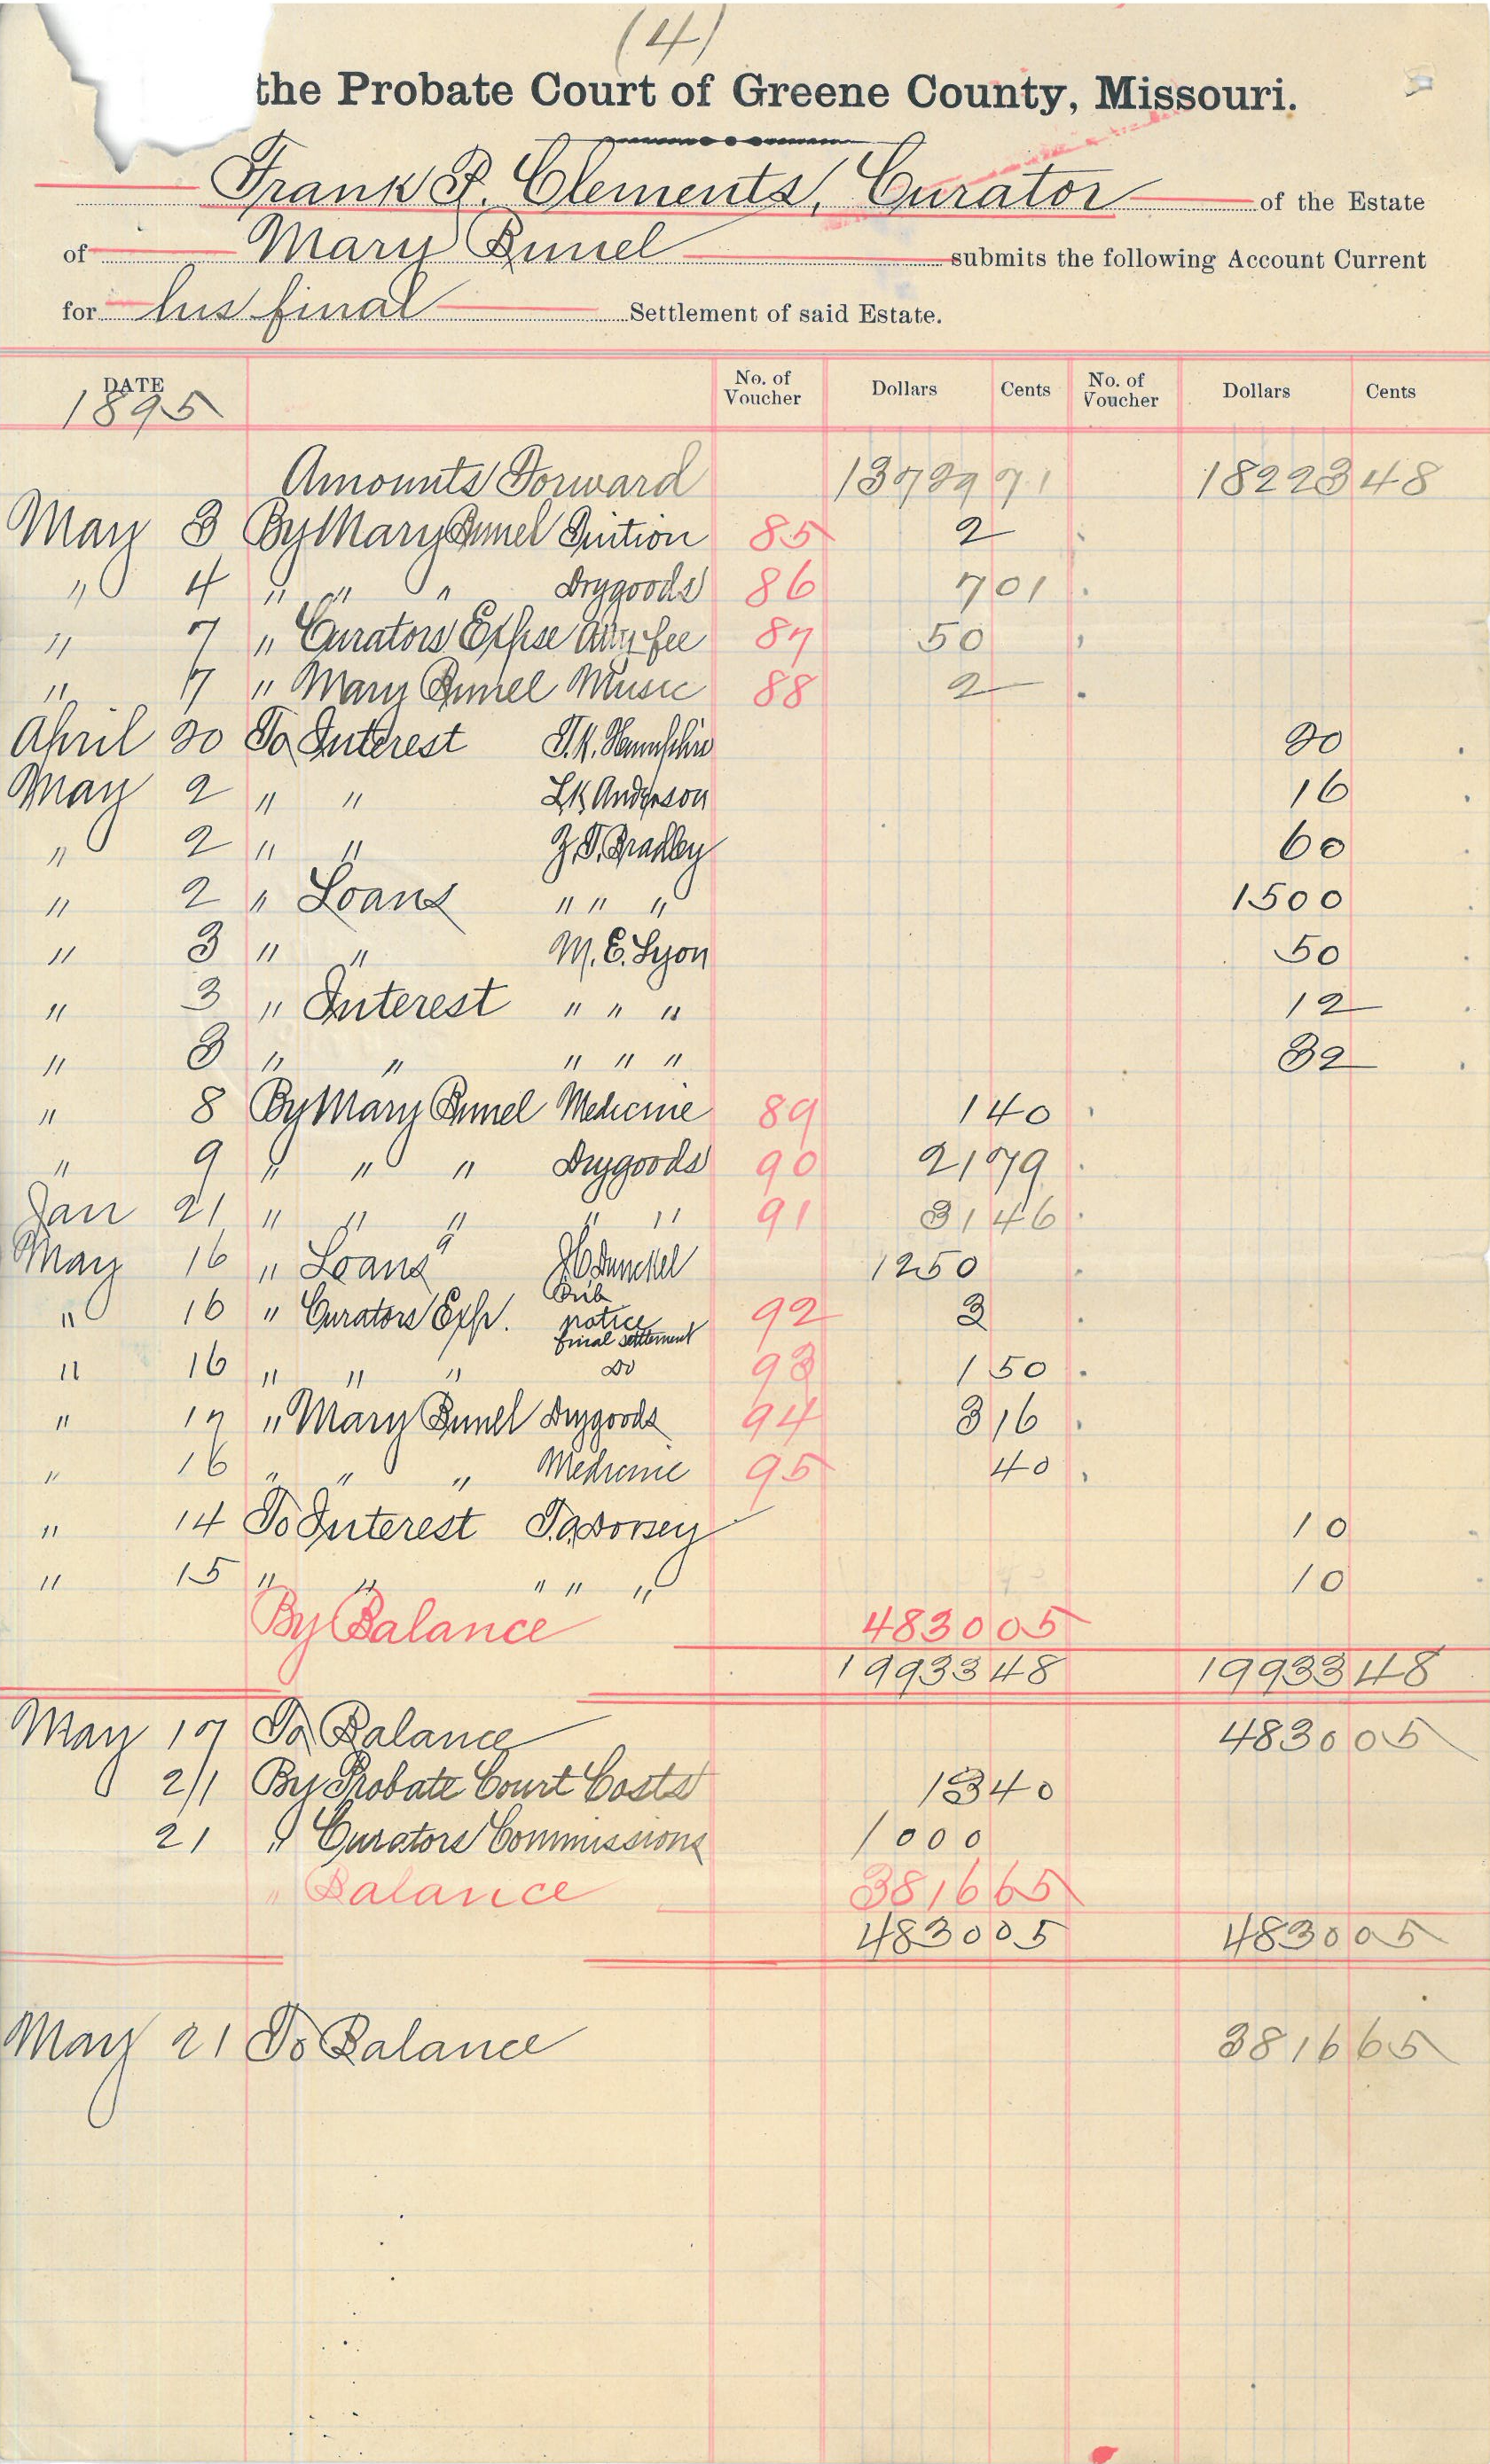 (4)
the Probate Court of Greene County, Missouri.
Frank P. Clements, Curator of the Estate
of Mary Bunel submits the following Account Current
for his final Settlement of said Estate.
DATE No. of Voucher Dollars Cents No. of Voucher Dollars Cents
1895
Amounts Forward 13729 71 18223 48
May 3 By Mary Bunel Tuition 85 2
" 4 " " " Drygoods 86 7 01
" 7 " Curators Expse Atty fee 87 50
" 7 " Mary Bunel Music 88 2
April 20 To Interest 20
May 2 " " L K Anderson 16
" 2 " " Z. T. Bradley 60
" 2 " Loans " " " 1500
" 3 " " M. E. Lyon 50
" 3 " Interest " " " 12
" 3 " " " " " 32
" 8 By Mary Bunel Medicine 89 1 40
" 9 " " " Drygoods 90 21 79
Jan 21 " " " " " 91 31 46
May 16 " Loans J C Dunckel 1250
" 16 " Curators Exp. Pub notice final settlement 92 3
" 16 " " " Do 93 1 50
" 17 " Mary Bunel Drygoods 94 3 16
" 16 " " " Medicine 95 40
" 14 To Interest T. A. Dorsey 10
" 15 " " " " " 10
By Balance 4830 05
19933 48 19933 48
May 17 To Balance 4830 05
21 By Probate Court Costs 13 40
21 " Curators Commissions 1000
" Balance 3816 65
4830 05 4830 05
May 21 To Balance 3816 65